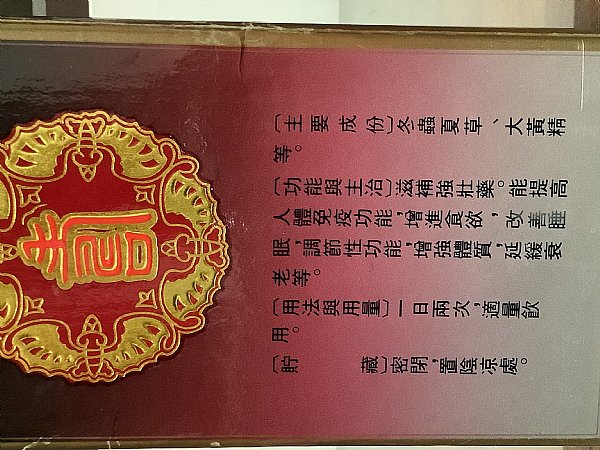 〔主要成份〕冬蟲夏草、大黃精
等。
〔功能與主治〕滋補強壯藥。能提高
人體免疫功能，增進食欲，改善睡
眠，調節性功能，增強體質，延緩衰
老等。
〔用法與用量〕一日兩次，適量飲
用。
〔貯藏〕密閉，置陰凉處。